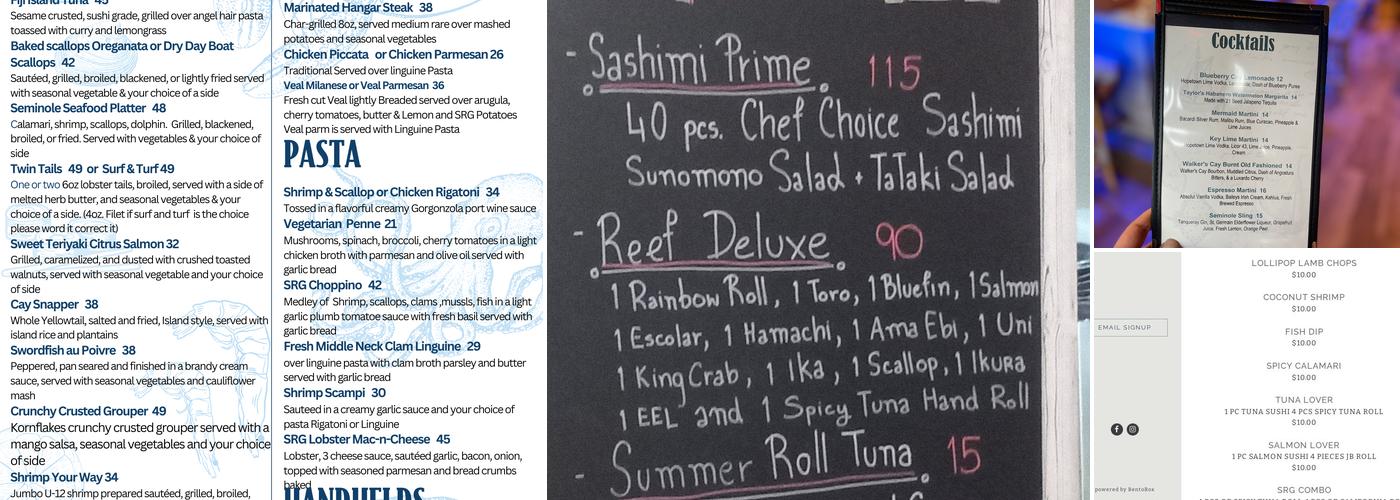 Fiji Island Tuna 45
Sesame crusted, sushi grade, grilled over angel hair pasta
toassed with curry and lemongrass
Baked scallops Oreganata or Dry Day Boat
Scallops 42
Sautéed, grilled, broiled, blackened, or lightly fried served
with seasonal vegetable & your choice of a side
Seminole Seafood Platter 48
Calamari, shrimp, scallops, dolphin. Grilled, blackened,
broiled, or fried. Served with vegetables & your choice of
side
Twin Tails 49 or Surf & Turf 49
One or two 6oz lobster tails, broiled, served with a side of
melted herb butter, and seasonal vegetables & your
choice of a side. (4oz. Filet if surf and turf is the choice
please word it correct it)
Sweet Teriyaki Citrus Salmon 32
Grilled, caramelized, and dusted with crushed toasted
walnuts, served with seasonal vegetable and your choice
of side
Cay Snapper 38
Whole Yellowtail, salted and fried, Island style, served with
island rice and plantains
Swordfish au Poivre 38
Peppered, pan seared and finished in a brandy cream
sauce, served with seasonal vegetables and cauliflower
mash
Crunchy Crusted Grouper 49
Kornflakes crunchy crusted grouper served with a
mango salsa, seasonal vegetables and your choice
of side
Shrimp Your Way 34
Jumbo U-12 shrimp prepared sautéed, grilled, broiled,
Marinated Hangar Steak 38
Char-grilled 8oz, served medium rare over mashed
potatoes and seasonal vegetables
Chicken Piccata or Chicken Parmesan 26
Traditional Served over linguine Pasta
Veal Milanese or Veal Parmesan 36
Fresh cut Veal lightly Breaded served over arugula,
cherry tomatoes, butter & Lemon and SRG Potatoes
Veal parm is served with Linguine Pasta
PASTA
Shrimp & Scallop or Chicken Rigatoni 34
Tossed in a flavorful creamy Gorgonzola port wine sauce
Vegetarian Penne 21
Mushrooms, spinach, broccoli, cherry tomatoes in a light
chicken broth with parmesan and olive oil served with
garlic bread
SRG Choppino 42
Medley of Shrimp, scallops, clams ,mussls, fish in a light
garlic plumb tomatoe sauce with fresh basil served with
garlic bread
Fresh Middle Neck Clam Linguine 29
over linguine pasta with clam broth parsley and butter
served with garlic bread
Shrimp Scampi 30
Sauteed in a creamy garlic sauce and your choice of
pasta Rigatoni or Linguine
SRG Lobster Mac-n-Cheese 45
Lobster, 3 cheese sauce, sautéed garlic, bacon, onion,
topped with seasoned parmesan and bread crumbs
baked
HANDHELDS
- Sashimi Prime. 115
40 pcs. Chef Choice Sashimi
Sunomono Salad + TaTaki Salad
- Reef Deluxe. 90
1 Rainbow Roll, 1 Toro, 1 Bluefin, 1 Salmon
1 Escolar, 1 Hamachi, 1 Ama Ebi, 1 Uni
1 King Crab, 1 Ika, 1 Scallop, 1 Ikura
1 EEL and 1 Spicy Tuna Hand Roll
- Summer Roll Tuna. 15
Cocktails
Blueberry Lemonade 12
Hopetown Lime Vodka, Dash of Blueberry Puree
Taylor's Habanero Watermelon Margarita 14
Made with 21 Seed Jalapeno Tequila
Mermaid Martini 14
Bacardi Silver Rum, Malibu Rum, Blue Curacao, Pineapple &
Lime Juices
Key Lime Martini 14
Hopetown Lime Vodka, Licor 43, Lime Juice, Pineapple,
Cream
Walker's Cay Burnt Old Fashioned 14
Walker's Cay Bourbon, Muddled Citrus, Dash of Angostura
Bitters, & a Luxardo Cherry
Espresso Martini 16
Absolut Vanilla Vodka, Baileys Irish Cream, Kahlua, Fresh
Brewed Espresso
Seminole Sling 15
Tanqueray Gin, St. Germain Elderflower Liqueur, Grapefruit
Juice, Fresh Lemon, Orange Peel
EMAIL SIGNUP
powered by BentoBox
LOLLIPOP LAMB CHOPS
$10.00
COCONUT SHRIMP
$10.00
FISH DIP
$10.00
SPICY CALAMARI
$10.00
TUNA LOVER
1 PC TUNA SUSHI 4 PCS SPICY TUNA ROLL
$10.00
SALMON LOVER
1 PC SALMON SUSHI 4 PIECES JB ROLL
$10.00
SRG COMBO